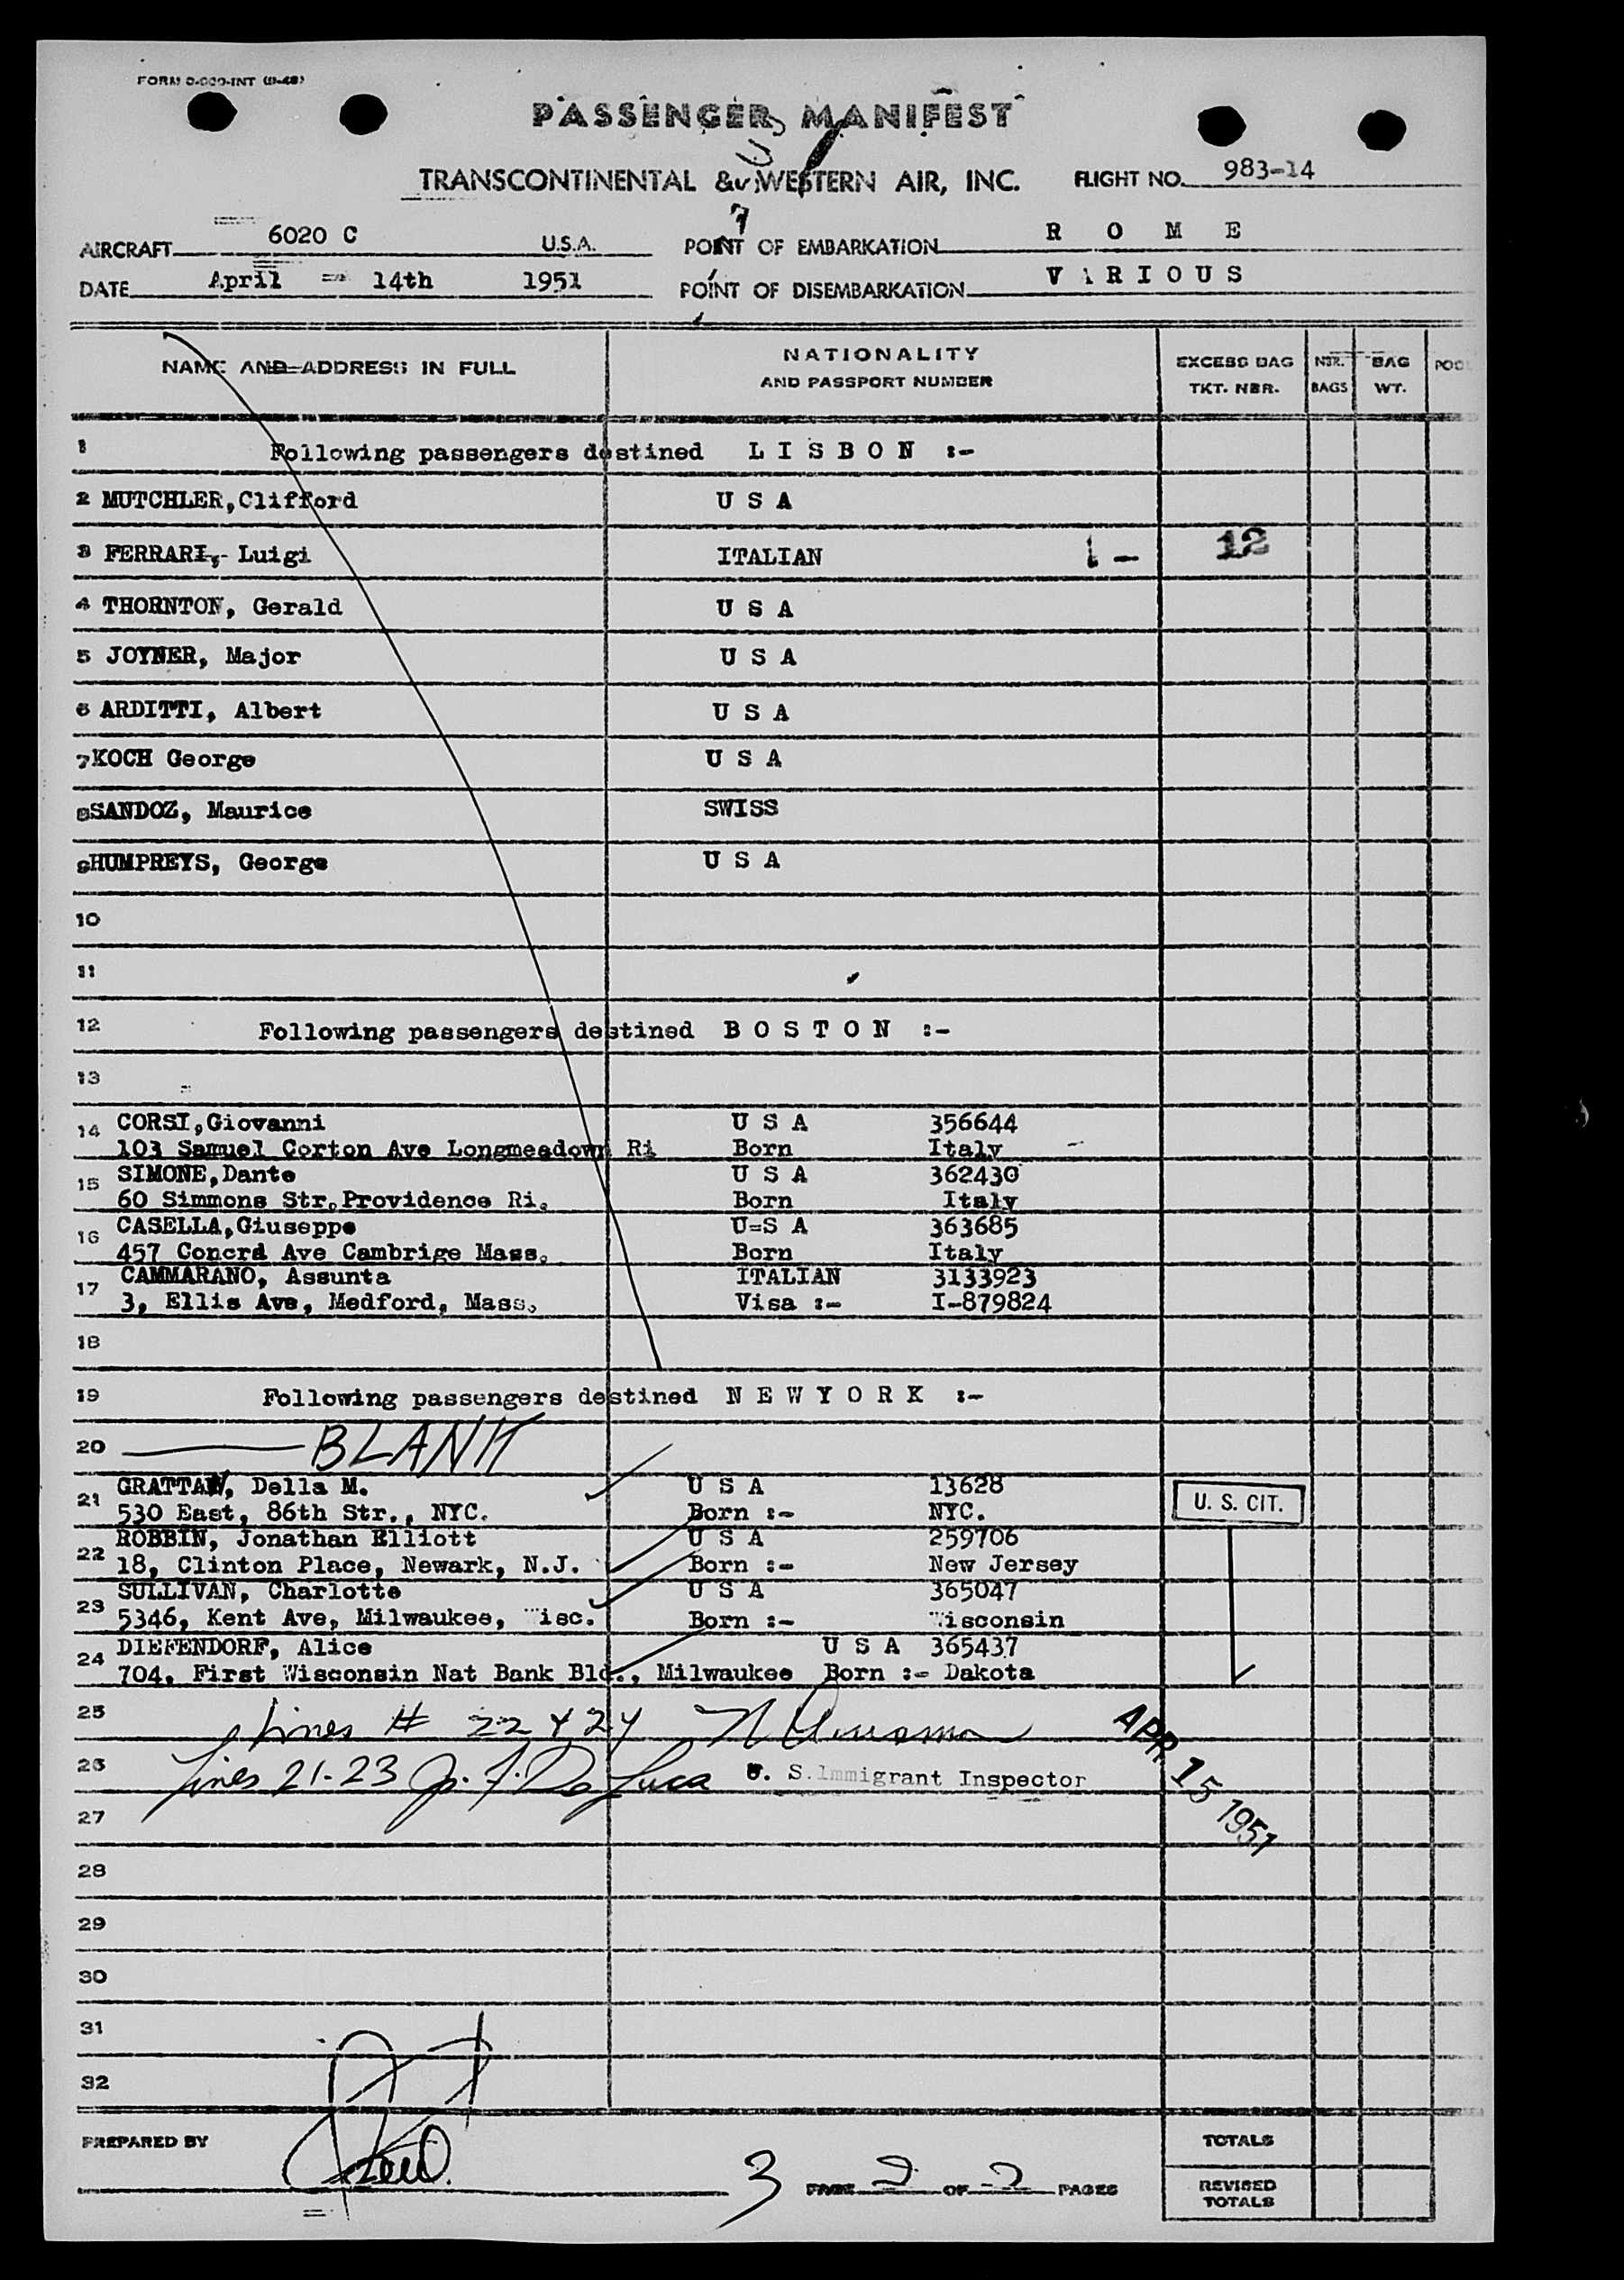 PASSENGER MANIFEST
TRANSCONTINENTAL & WESTERN AIR, INC. FLIGHT NO. 983-14
AIRCRAFT 6020 C U.S.A. POINT OF EMBARKATION R O M E
DATE April 14th 1951 POINT OF DISEMBARKATION V A R I O U S
NAME AND ADDRESS IN FULL
NATIONALITY
AND PASSPORT NUMBER
EXCESS BAG
TKT. NBR.
NBR.
BAGS
BAG
WT.
1 Following passengers destined L I S B O N :-
2 MUTCHLER,Clifford U S A
3 FERRARI, Luigi ITALIAN 1 - 12
4 THORNTON, Gerald U S A
5 JOYNER, Major U S A
6 ARDITTI, Albert U S A
7 KOCH George U S A
8 SANDOZ, Maurice SWISS
9 HUMPREYS, George U S A
10
11
12 Following passengers destined B O S T O N :-
13
14 CORSI,Giovanni U S A 356644
103 Samuel Corton Ave Longmeadown Ri Born Italy
15 SIMONE,Dante U S A 362430
60 Simmons Str.Providence Ri. Born Italy
16 CASELLA,Giuseppe U=S A 363685
457 Concrd Ave Cambrige Mass. Born Italy
17 CAMMARANO, Assunta ITALIAN 3133923
3, Ellis Ave, Medford, Mass. Visa :- I-879824
18
19 Following passengers destined N E W Y O R K :-
20 BLANK
21 GRATTAN, Della M. U S A 13628
530 East, 86th Str., NYC. Born :- NYC.
U. S. CIT.
22 ROBBIN, Jonathan Elliott U S A 259706
18, Clinton Place, Newark, N.J. Born :- New Jersey
23 SULLIVAN, Charlotte U S A 365047
5346, Kent Ave, Milwaukee, Wisc. Born :- Wisconsin
24 DIEFENDORF, Alice U S A 365437
704, First Wisconsin Nat Bank Bld., Milwaukee Born :- Dakota
25 Lines # 22 & 24
26 Lines 21-23 Jo. F. De Luca U. S. Immigrant Inspector
APR 15 1951
27
28
29
30
31
32
PREPARED BY
3 PAGE 2 OF 2 PAGES
TOTALS
REVISED
TOTALS